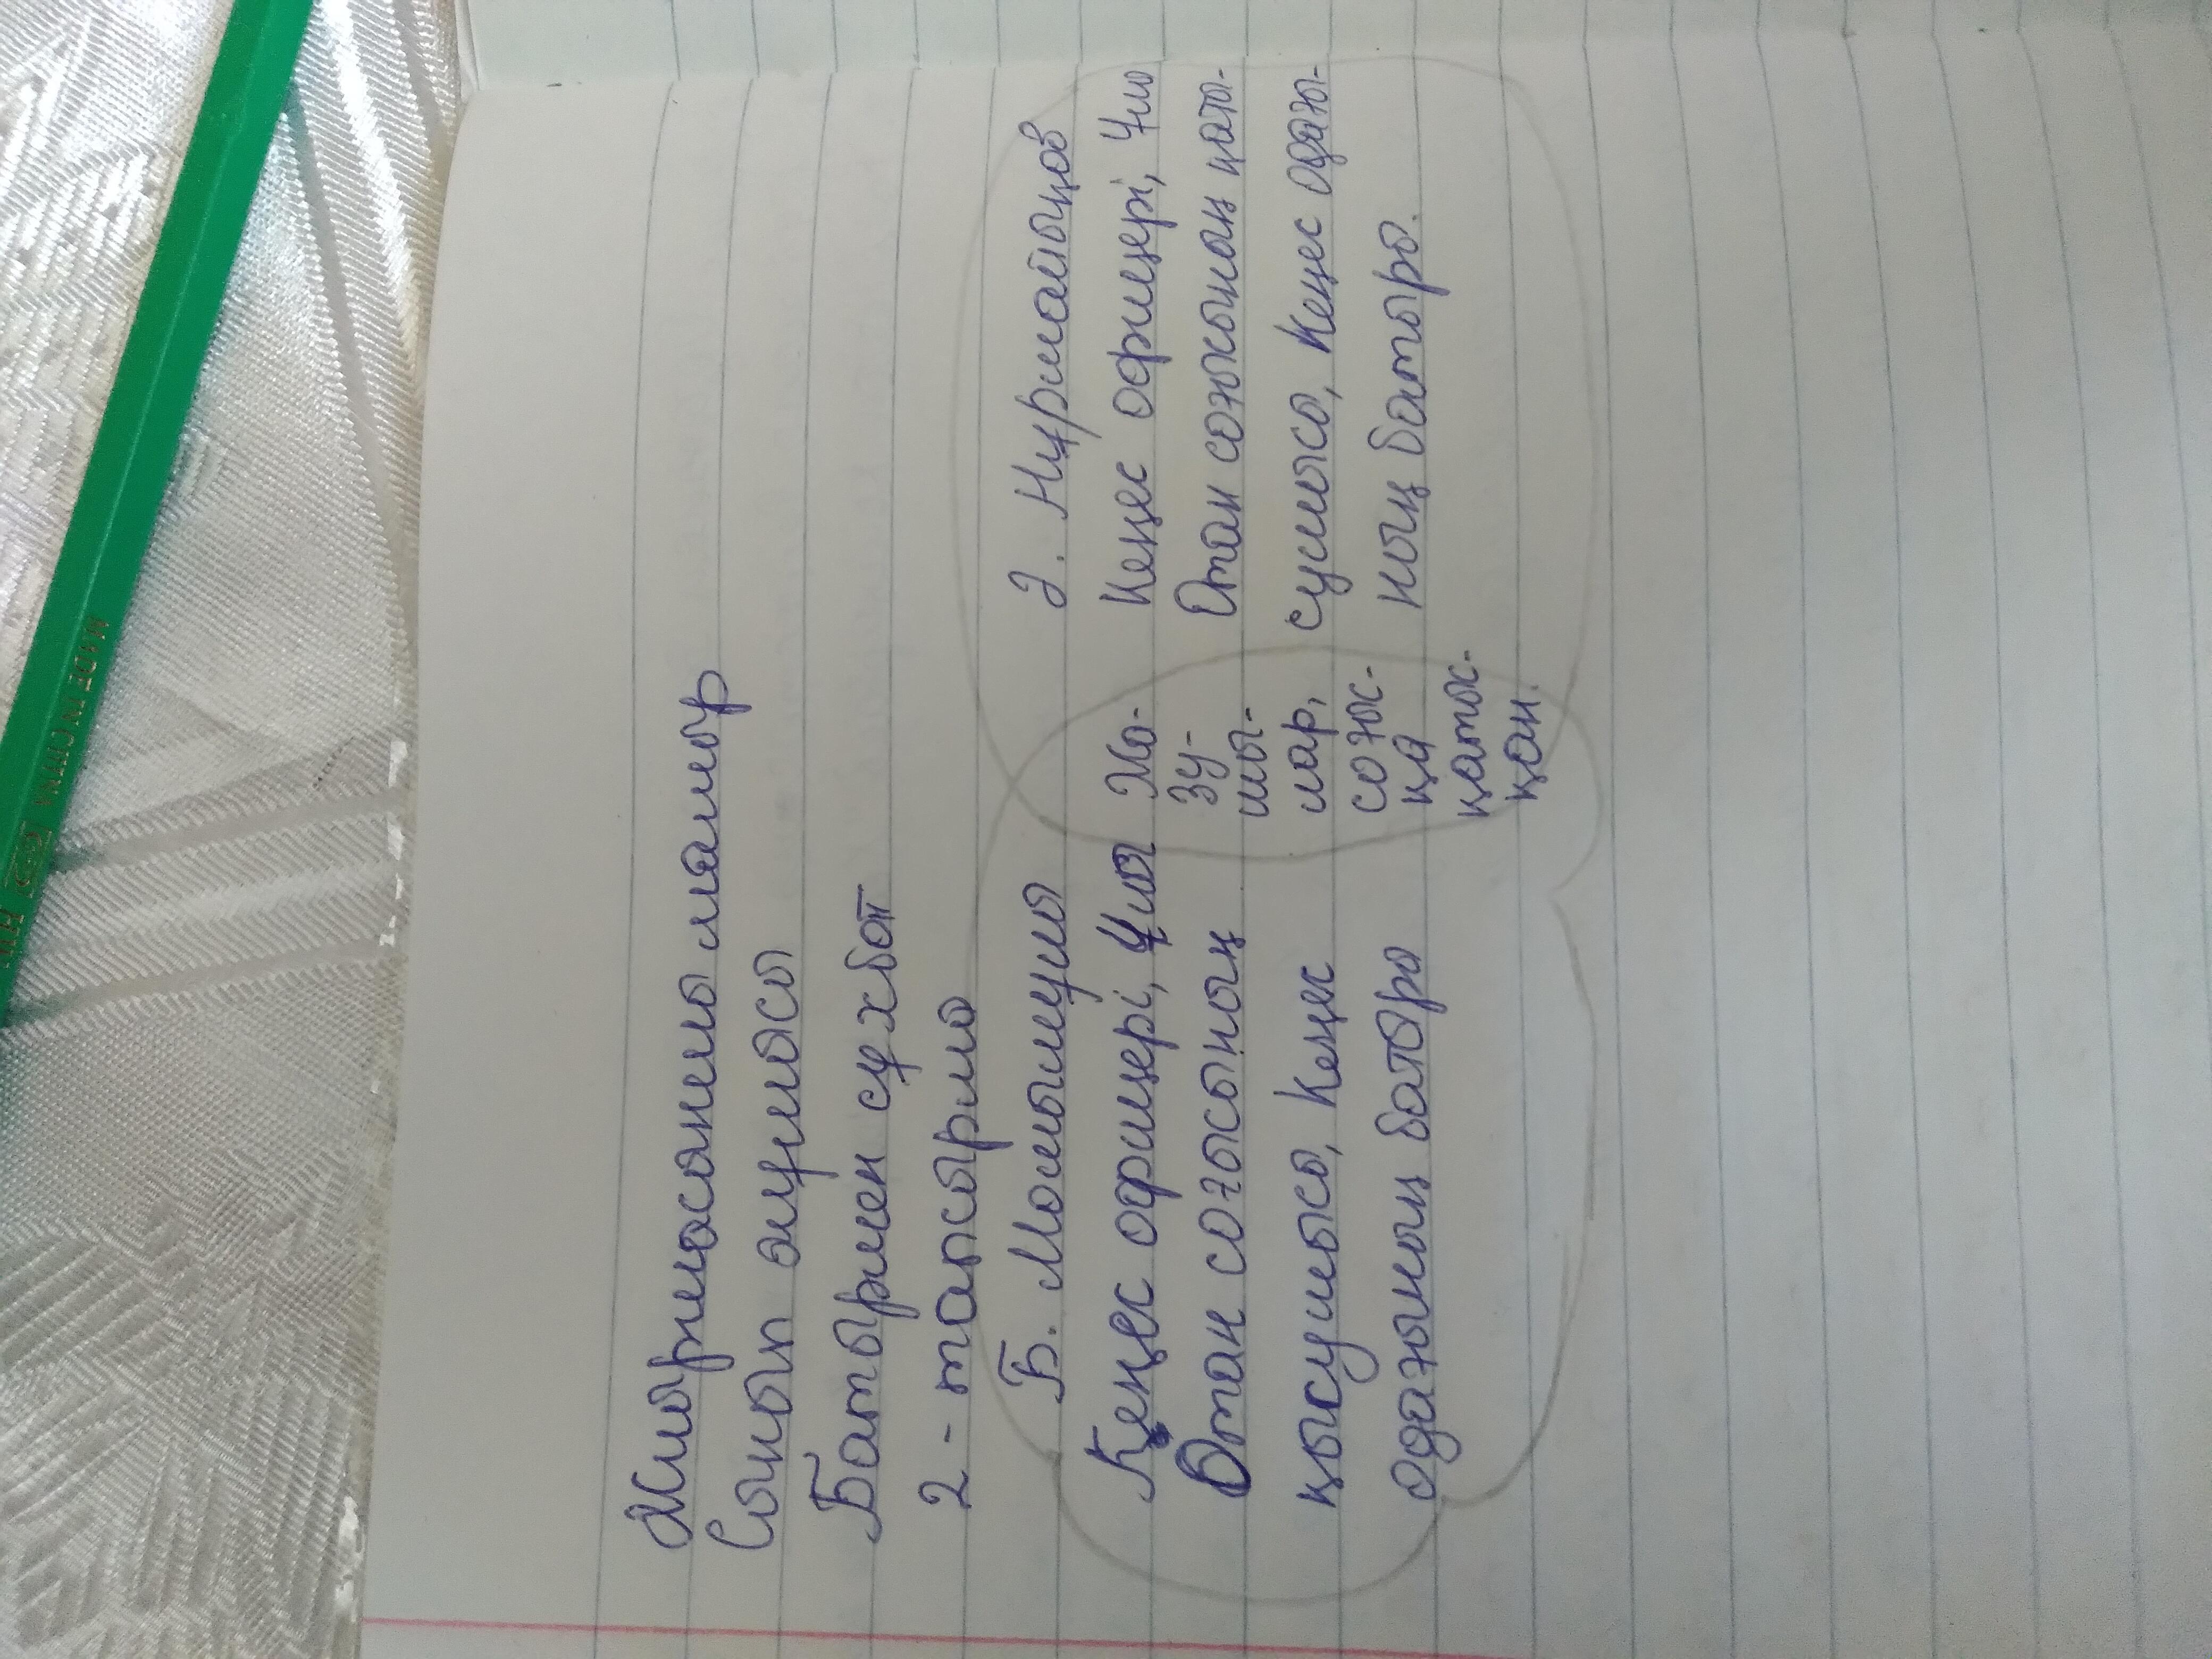 Жиырмасыншы мамыр
Сынып жұмысы
Батырмен сұхбат
2-тапсырма
Б. Момышұлы
Кеңес офицері, Ұлы
Отан соғысының
қысушыса, Кеңес
одағының батыра
Ха-
зу-
шы-
лар,
соғыс-
қа
қатыс-
қан.
Ә. Нұрмайықов
Кеңес офицері, Ұлы
Отан соғысының қаты-
сушыса, Кеңес одағы-
ның батыры.
MADE IN CHINA